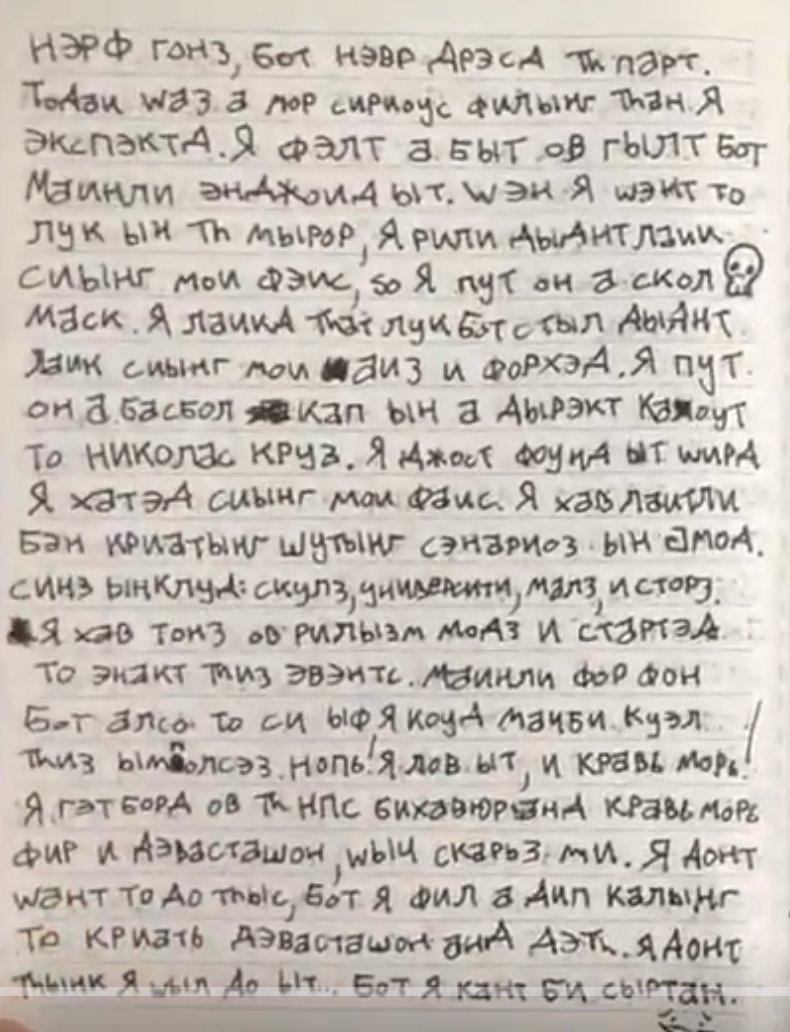 НЭРФ ГОНЗ, БОТ НЭВР ДРЭСД Тh ПАРТ.
ТоДаи Wаз а мор сириоус филынг Тhан Я
экспэктд. Я фэлт а быт ов гылт бот
маинли энджоид ыт. Wэн Я Wэнт то
лук ын Тh мырор, Я рили дыднт лаик
сиынг мои фэис, so Я пут он а скол
маск. Я лаикд Тhат лук бот стыл дыднт
лаик сиынг мои аиз и форхэд. Я пут
он а басбол кап ын а дырэкт каллоут
то николас круз. Я джост фоунд ыт wирд
Я хатэд сиынг мои фаис. Я хав лаитли
бэн криатынг шутынг сэнариоз ын амод.
синз ынклуд: скулз, университи, малз, и сторз.
Я хав тонз ов рилызм модз и стартэд
то энакт Тhиз эвэнтс. маинли фор фон
бот алсо то си ыф Я коуд маиби куэл
Тhиз ымполсэз. нопь! Я лов ыт, и кравь морь!
Я гэт борд ов Тh НПС бихавюр анд кравь морь
фир и дэвасташон, wыч скарьз ми. Я донт
wант то до Тhыс, бот Я фил а дип калынг
то криать дэвасташон анд дэTh. Я донт
Тhынк Я wыл до ыт... бот Я кант би сыртан.